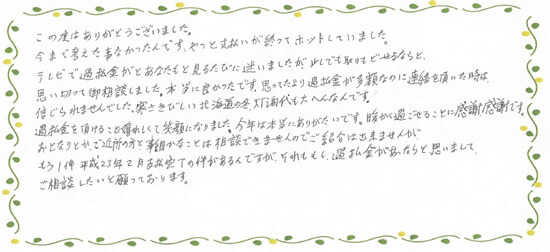 この度はありがとうございました。
今まで考えた事なかったんです、やっと支払いが終ってホットしていました。
テレビで過払金がとあなたもと見るたびに迷いましたが少しでも取りもどせるならと、
思い切って御相談しました。本当に良かったです。思ってたより過払金が多額なのに連絡を頂いた時は
信じられませんでした。寒さきびしい北海道の冬灯油代も大へんなんです。
過払金を頂けること嬉れしくて笑顔になりました。今年は本当にありがたいです。暖かく過ごせることに感謝感謝です。
おとなりとか、ご近所の方と事細かなことは相談できませんのでご紹介は出来ませんが
もう1件平成23年2月支払完了の件があるんですが、それももし、過払金があるならと思いまして、
ご相談したいと願っております。